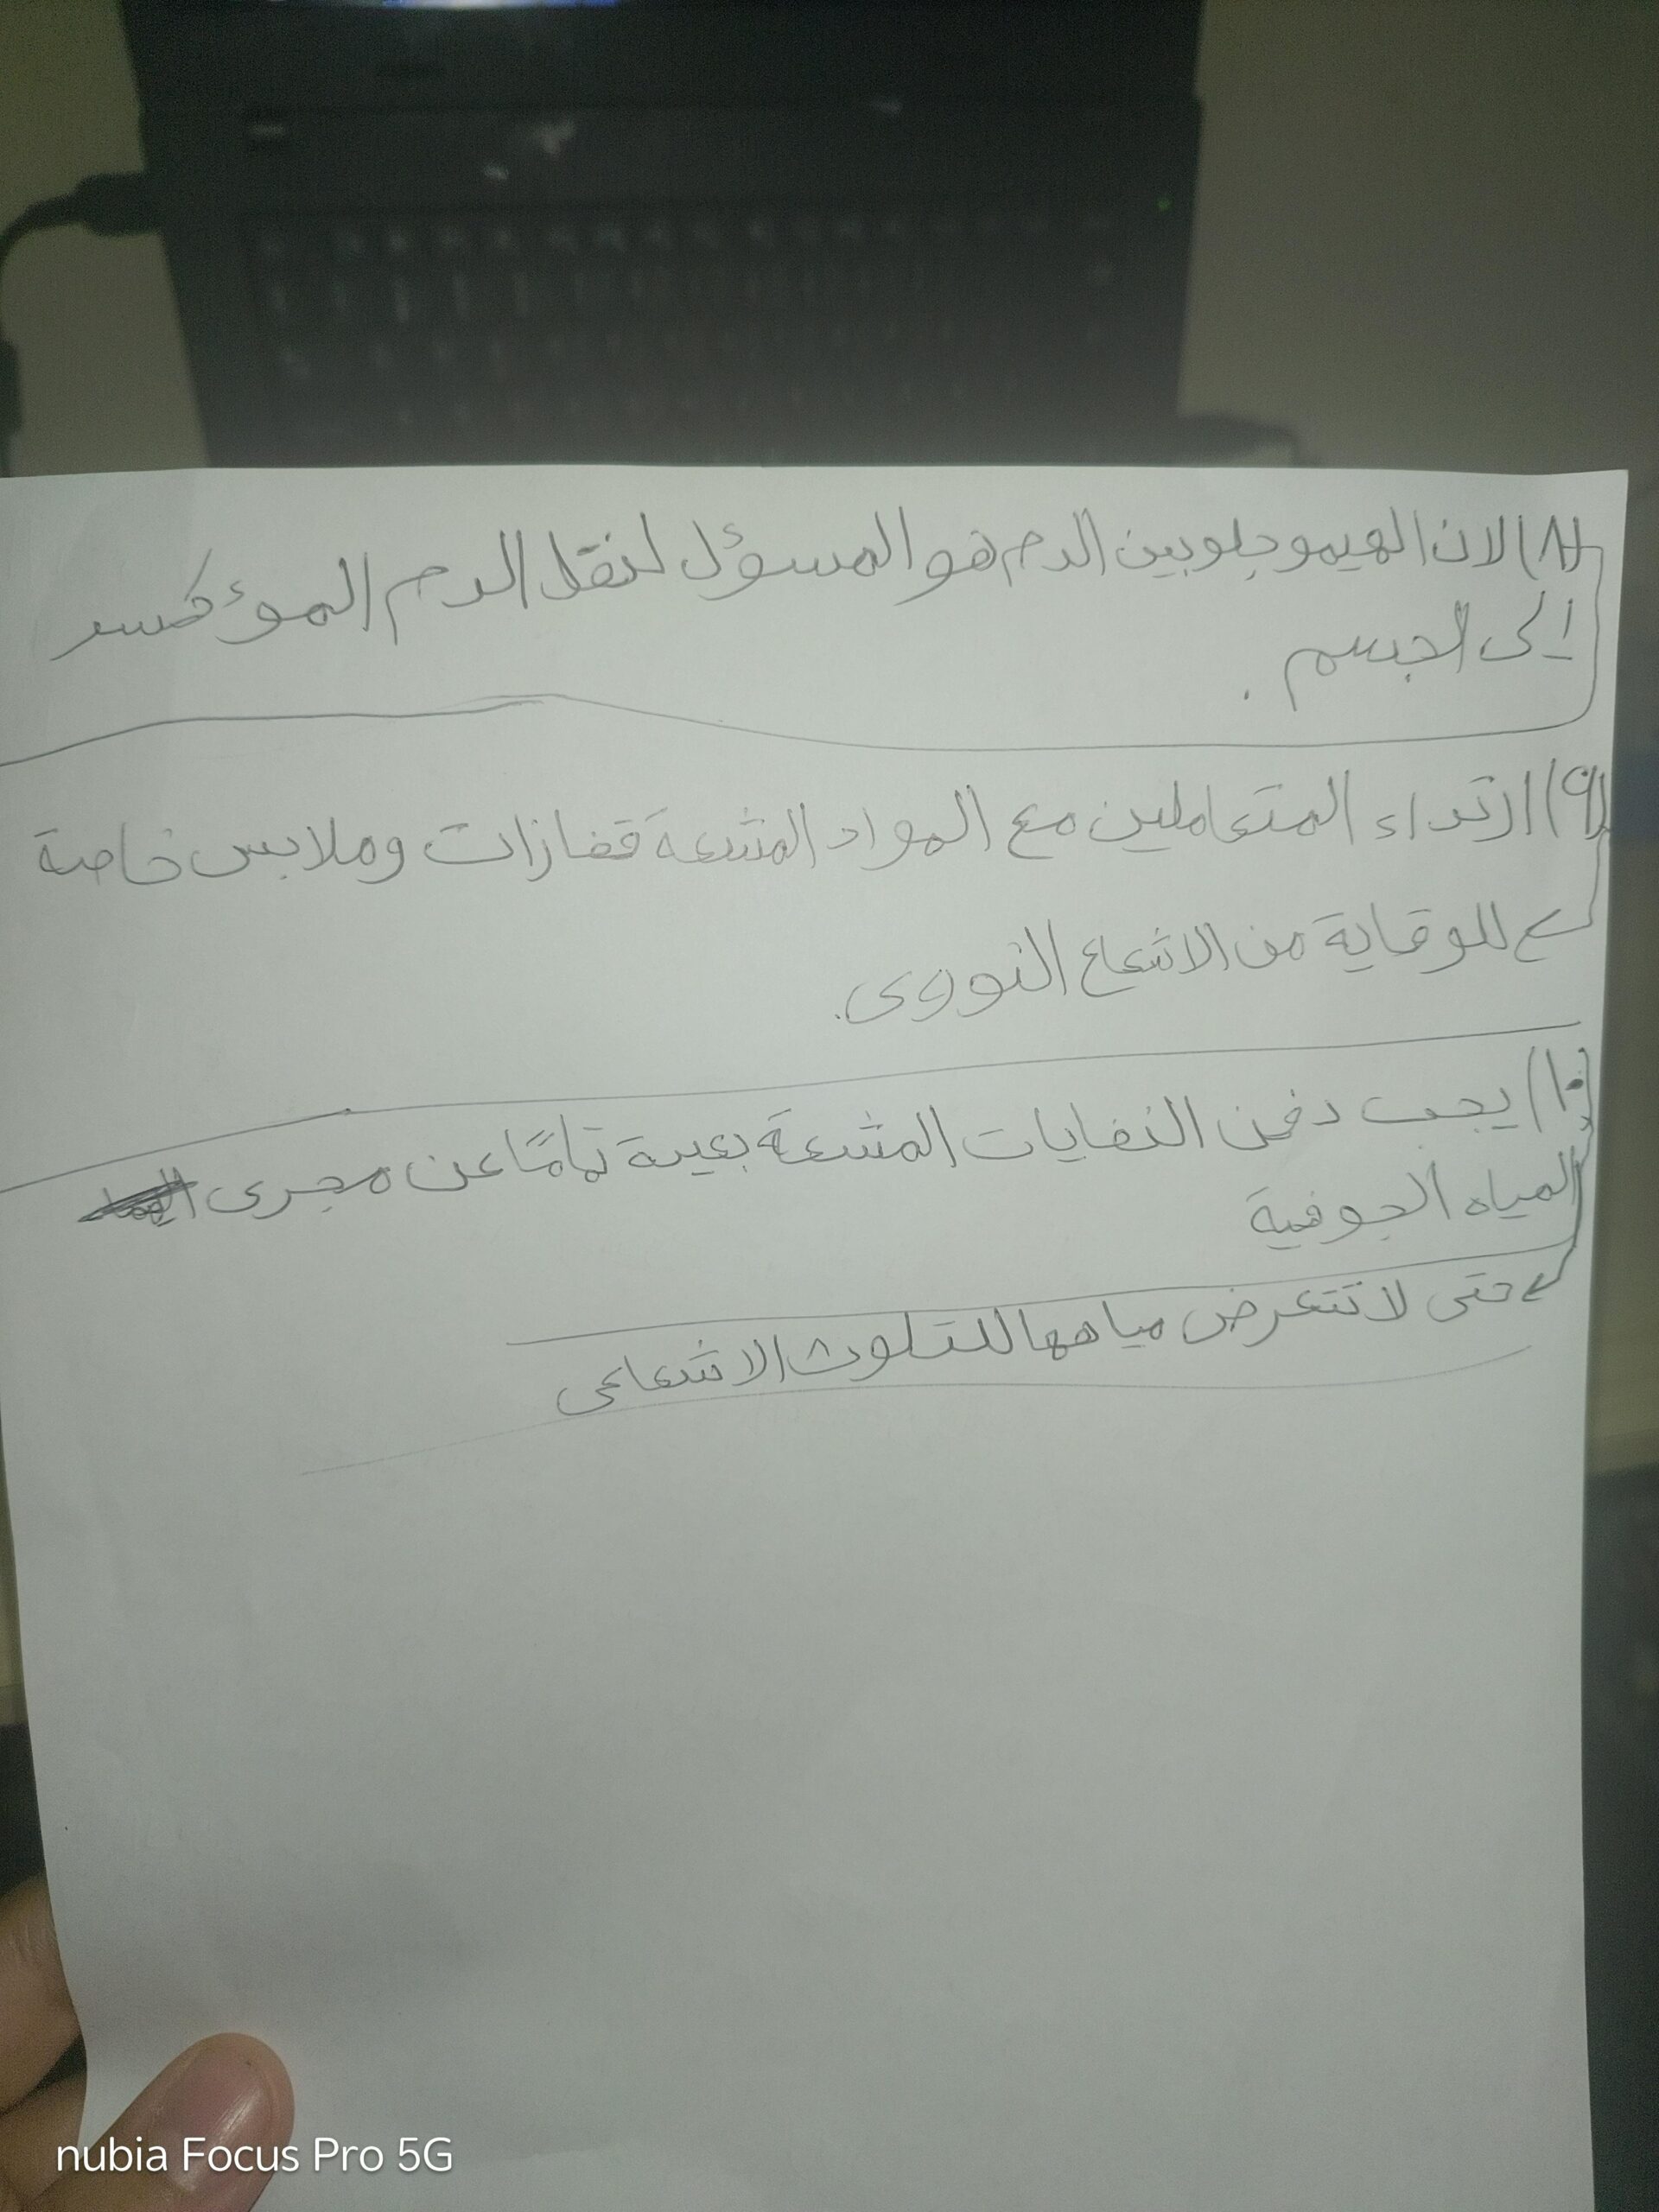 ٨) لان الهيموجلوبين الدم هو المسؤل لنقل الدم الموؤكسر
إلى الجسم .
٩) ارتداء المتعاملين مع المواد المشعة قفازات وملابس خاصة
للوقاية من الاشعاع النووى.
١٠) يجب دفن النفايات المشعة بعيدة تمامًا عن مجرى
المياه الجوفية
حتى لا تتعرض مياهها للتلوث الاشعاعى
nubia Focus Pro 5G